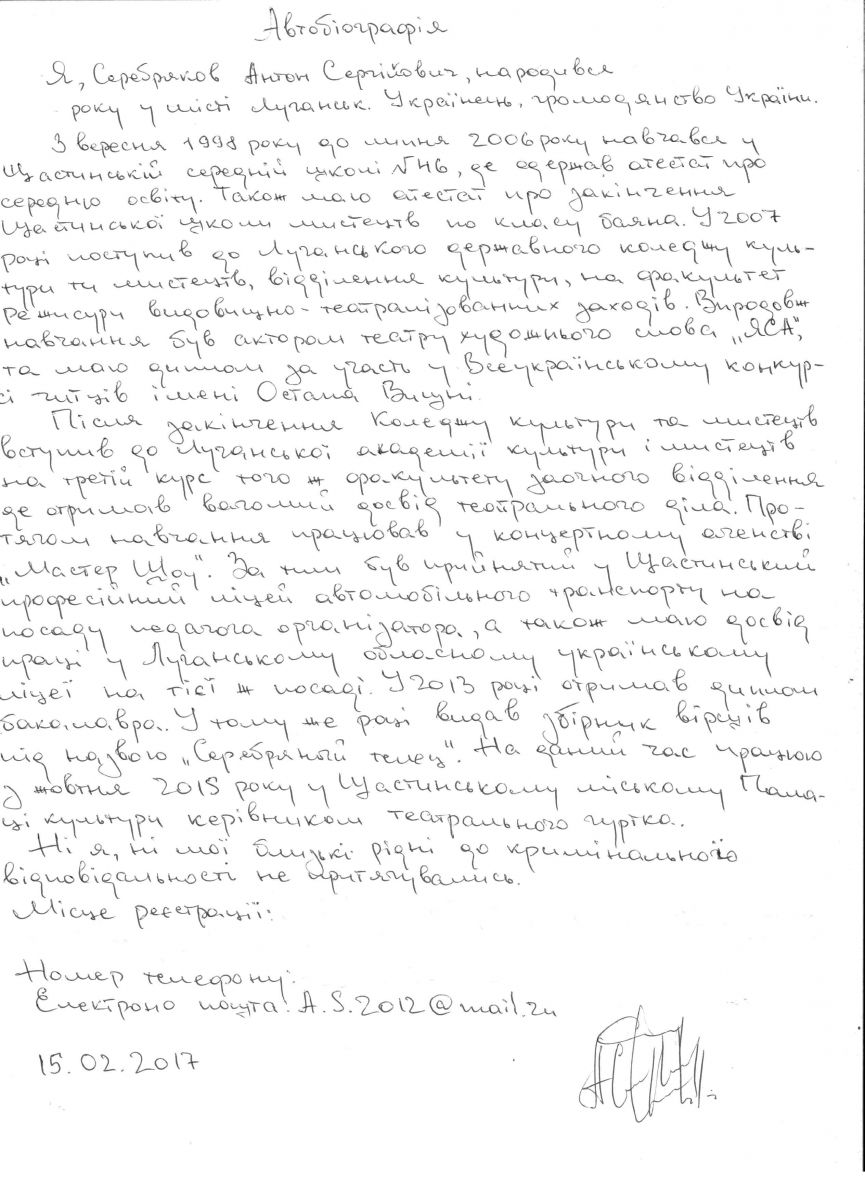 Автобіографія
Я, Серебряков Антон Сергійович, народився
року у місті Луганськ. Українець, громодянство України.
З вересня 1998 року до липня 2006 року навчався у
Щастинській середній школі №46, де одержав атестат про
середню освіту. Також маю атестат про закінчення
Щастинської школи мистецтв по класу баяна. У 2007
році поступив до Луганського державного коледжу куль-
тури та мистецтв, відділення культури, на факультет
Режисури видовищно-театралізованних заходів. Впродовж
навчання був актором театру художнього слова „ЯСА",
та маю диплом за участь у Всеукраїнському конкур-
сі читців імені Остапа Вишні.
Після закінчення Коледжу культури та мистецтв
вступив до Луганської академії культури і мистецтв
на третій курс того ж факультету заочного відділення
де отримав вагомий досвід театрального діла. Про-
тягом навчання працював у концертному агенстві
„Мастер Шоу". За тим був прийнятий у Щастинський
професійний ліцей автомобільного транспорту на
посаду педагога організатора, а також маю досвід
праці у Луганському обласному українському
ліцеї на тієї ж посаді. У 2013 році отримав диплом
бакалавра. У тому же році видав збірник віршів
під назвою „Серебряный телец". На даний час працюю
з жовтня 2015 року у Щастинському міському Пала-
ці культури керівником театрального гуртка.
Ні я, ні мої близькі рідні до кримінальної
відповідальності не притягувались.
Місце реєстрації:
Номер телефону:
Електроно пошта: A.S.2012@mail.ru
15.02.2017